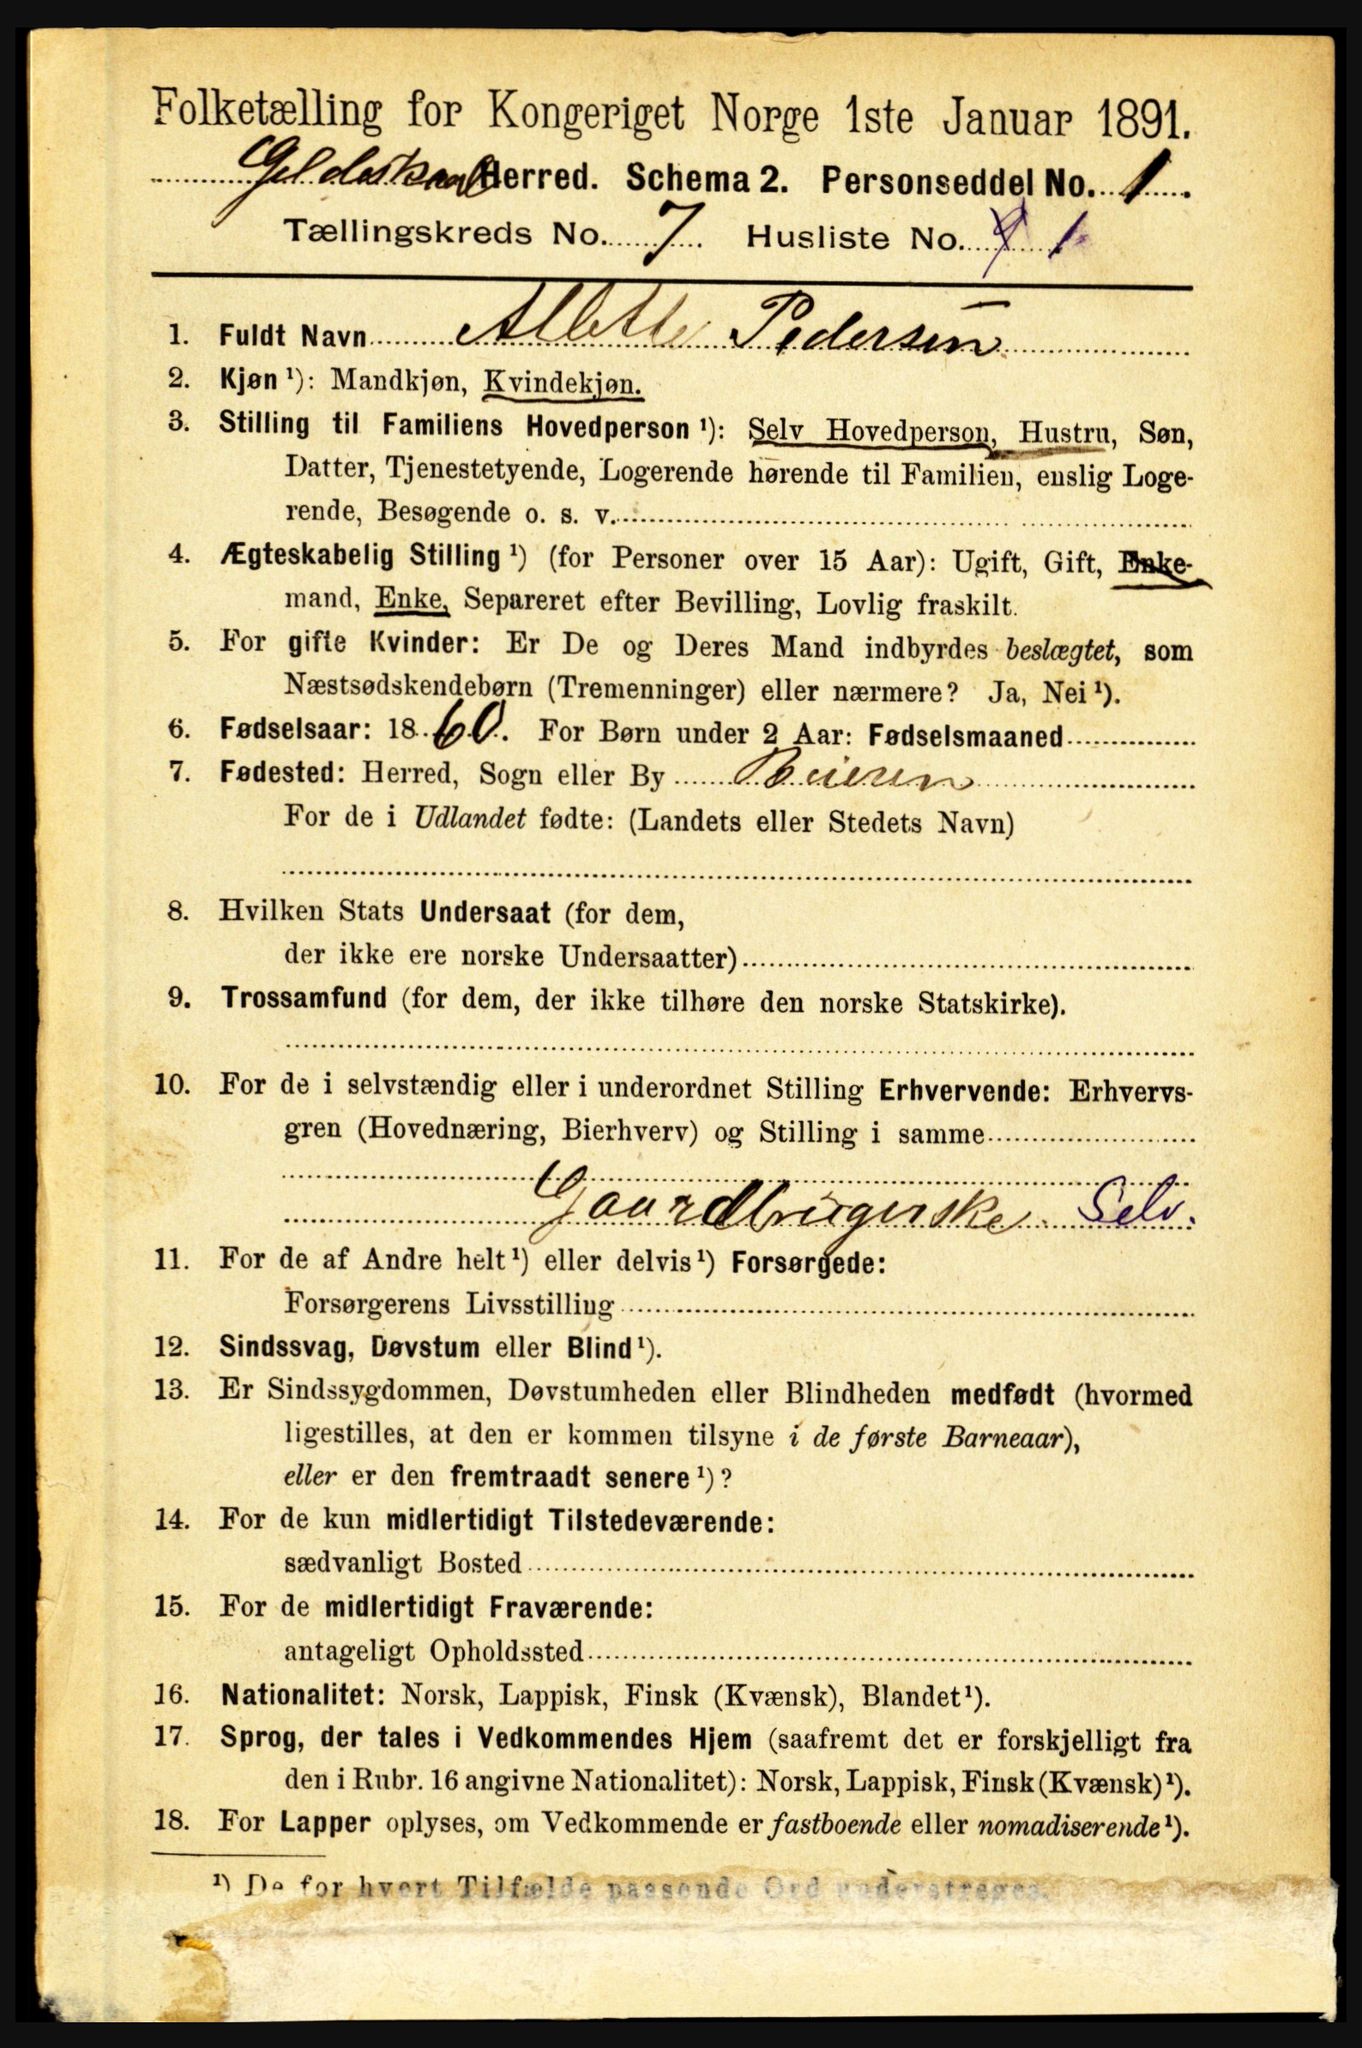 Folketælling for Kongeriget Norge 1ste Januar 1891.
Gildeskaal Herred. Schema 2. Personseddel No. 1.
Tællingskreds No. 7 Husliste No. 1
1. Fuldt Navn Albette Pedersen
2. Kjøn ¹): Mandkjøn, Kvindekjøn.
3. Stilling til Familiens Hovedperson ¹): Selv Hovedperson, Hustru, Søn,
Datter, Tjenestetyende, Logerende hørende til Familien, enslig Loge-
rende, Besøgende o. s. v.
4. Ægteskabelig Stilling ¹) (for Personer over 15 Aar): Ugift, Gift, Enke-
mand, Enke, Separeret efter Bevilling, Lovlig fraskilt.
5. For gifte Kvinder: Er De og Deres Mand indbyrdes beslægtet, som
Næstsødskendebørn (Tremenninger) eller nærmere? Ja, Nei ¹).
6. Fødselsaar: 1860. For Børn under 2 Aar: Fødselsmaaned
7. Fødested: Herred, Sogn eller By Beieren
For de i Udlandet fødte: (Landets eller Stedets Navn)
8. Hvilken Stats Undersaat (for dem,
der ikke ere norske Undersaatter)
9. Trossamfund (for dem, der ikke tilhøre den norske Statskirke).
10. For de i selvstændig eller i underordnet Stilling Erhvervende: Erhvervs-
gren (Hovednæring, Bierhverv) og Stilling i samme
Gaardbrugerske. Selv.
11. For de af Andre helt ¹) eller delvis ¹) Forsørgede:
Forsørgerens Livsstilling
12. Sindssvag, Døvstum eller Blind ¹).
13. Er Sindssygdommen, Døvstumheden eller Blindheden medfødt (hvormed
ligestilles, at den er kommen tilsyne i de første Barneaar),
eller er den fremtraadt senere ¹)?
14. For de kun midlertidigt Tilstedeværende:
sædvanligt Bosted
15. For de midlertidigt Fraværende:
antageligt Opholdssted
16. Nationalitet: Norsk, Lappisk, Finsk (Kvænsk), Blandet ¹).
17. Sprog, der tales i Vedkommendes Hjem (saafremt det er forskjelligt fra
den i Rubr. 16 angivne Nationalitet): Norsk, Lappisk, Finsk (Kvænsk) ¹).
18. For Lapper oplyses, om Vedkommende er fastboende eller nomadiserende ¹).
¹) De for hvert Tilfælde passende Ord understreges.